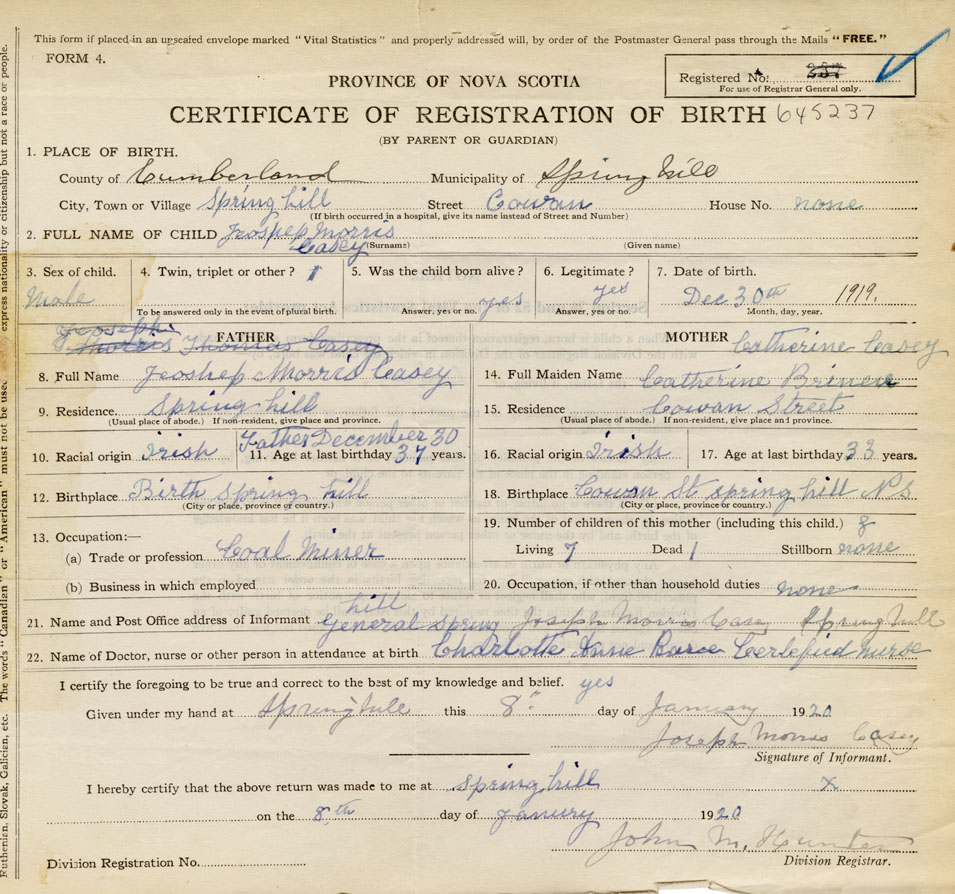 This form if placed in an unsealed envelope marked "Vital Statistics" and properly addressed will, by order of the Postmaster General pass through the Mails "FREE."
FORM 4.
Registered No. 237
For use of Registrar General only.
PROVINCE OF NOVA SCOTIA
CERTIFICATE OF REGISTRATION OF BIRTH 645237
(BY PARENT OR GUARDIAN)
1. PLACE OF BIRTH.
County of Cumberland Municipality of Spring hill
City, Town or Village Spring hill Street Cowan House No. none
(If birth occurred in a hospital, give its name instead of Street and Number)
2. FULL NAME OF CHILD Jeoshep Morris
Casey (Surname) (Given name)
3. Sex of child. 4. Twin, triplet or other? 1 5. Was the child born alive? 6. Legitimate? 7. Date of birth.
Male yes yes Dec 30th 1919.
To be answered only in the event of plural birth. Answer, yes or no. Answer, yes or no. Month, day, year.
Jeoseph
Morris Thomas Casey
FATHER MOTHER Catherine Casey
8. Full Name Jeoshep Morris Casey 14. Full Maiden Name Catherine
9. Residence. Spring hill 15. Residence Cowan Street
(Usual place of abode.) If non-resident, give place and province. (Usual place of abode.) If non-resident, give place and province.
Father December 30
10. Racial origin Irish 11. Age at last birthday 37 years. 16. Racial origin Irish 17. Age at last birthday 33 years.
12. Birthplace Birth Spring hill 18. Birthplace Cowan St spring hill NS
(City or place, province or country.) (City or place, province or country.)
13. Occupation:— 19. Number of children of this mother (including this child.) 8
(a) Trade or profession Coal Miner Living 7 Dead 1 Stillborn none
(b) Business in which employed 20. Occupation, if other than household duties none
hill
21. Name and Post Office address of Informant General Spring Joseph Morris Casey Spring hill
22. Name of Doctor, nurse or other person in attendance at birth Charlotte Anne Certefied nurse
I certify the foregoing to be true and correct to the best of my knowledge and belief. yes
Given under my hand at Springhill this 8" day of January 1920
Joseph Morris Casey
Signature of Informant.
I hereby certify that the above return was made to me at Spring hill x
on the 8th day of January 1920
John M. Hunter
Division Registrar.
Division Registration No.
Ruthenian, Slovak, Galician, etc. The words "Canadian" or "American" must not be used express nationality or citizenship but not a race or people.